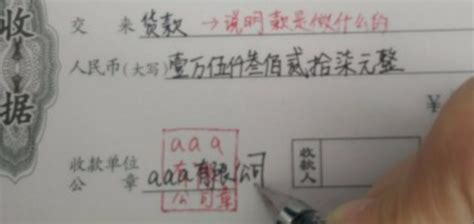 收据
交 来 货款 → 说明款是做什么的
人民币(大写) 壹万伍仟叁佰贰拾柒元整
¥
aaa
收款单位
公 章
aaa有限公司
公司章
收款人